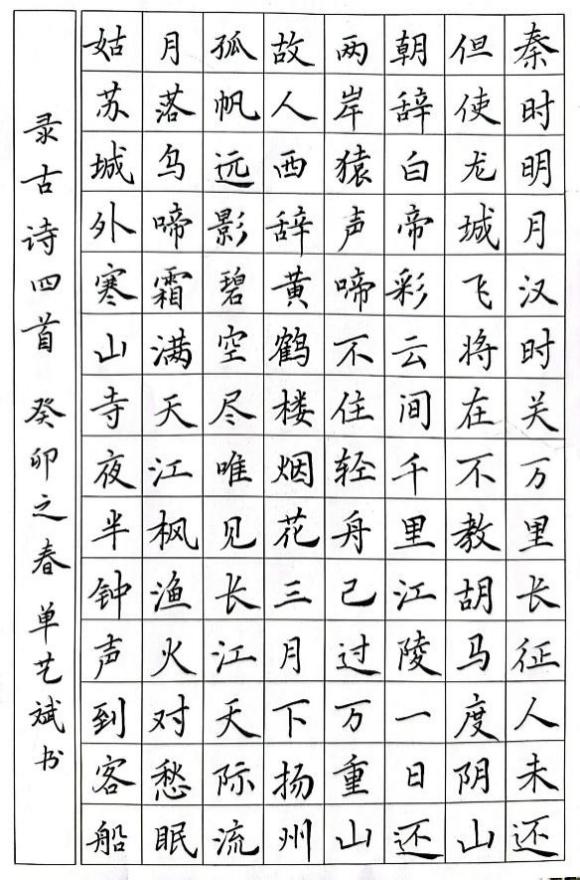 秦时明月汉时关万里长征人未还
但使龙城飞将在不教胡马度阴山
朝辞白帝彩云间千里江陵一日还
两岸猿声啼不住轻舟已过万重山
故人西辞黄鹤楼烟花三月下扬州
孤帆远影碧空尽唯见长江天际流
月落乌啼霜满天江枫渔火对愁眠
姑苏城外寒山寺夜半钟声到客船
录古诗四首 癸卯之春 单艺斌书